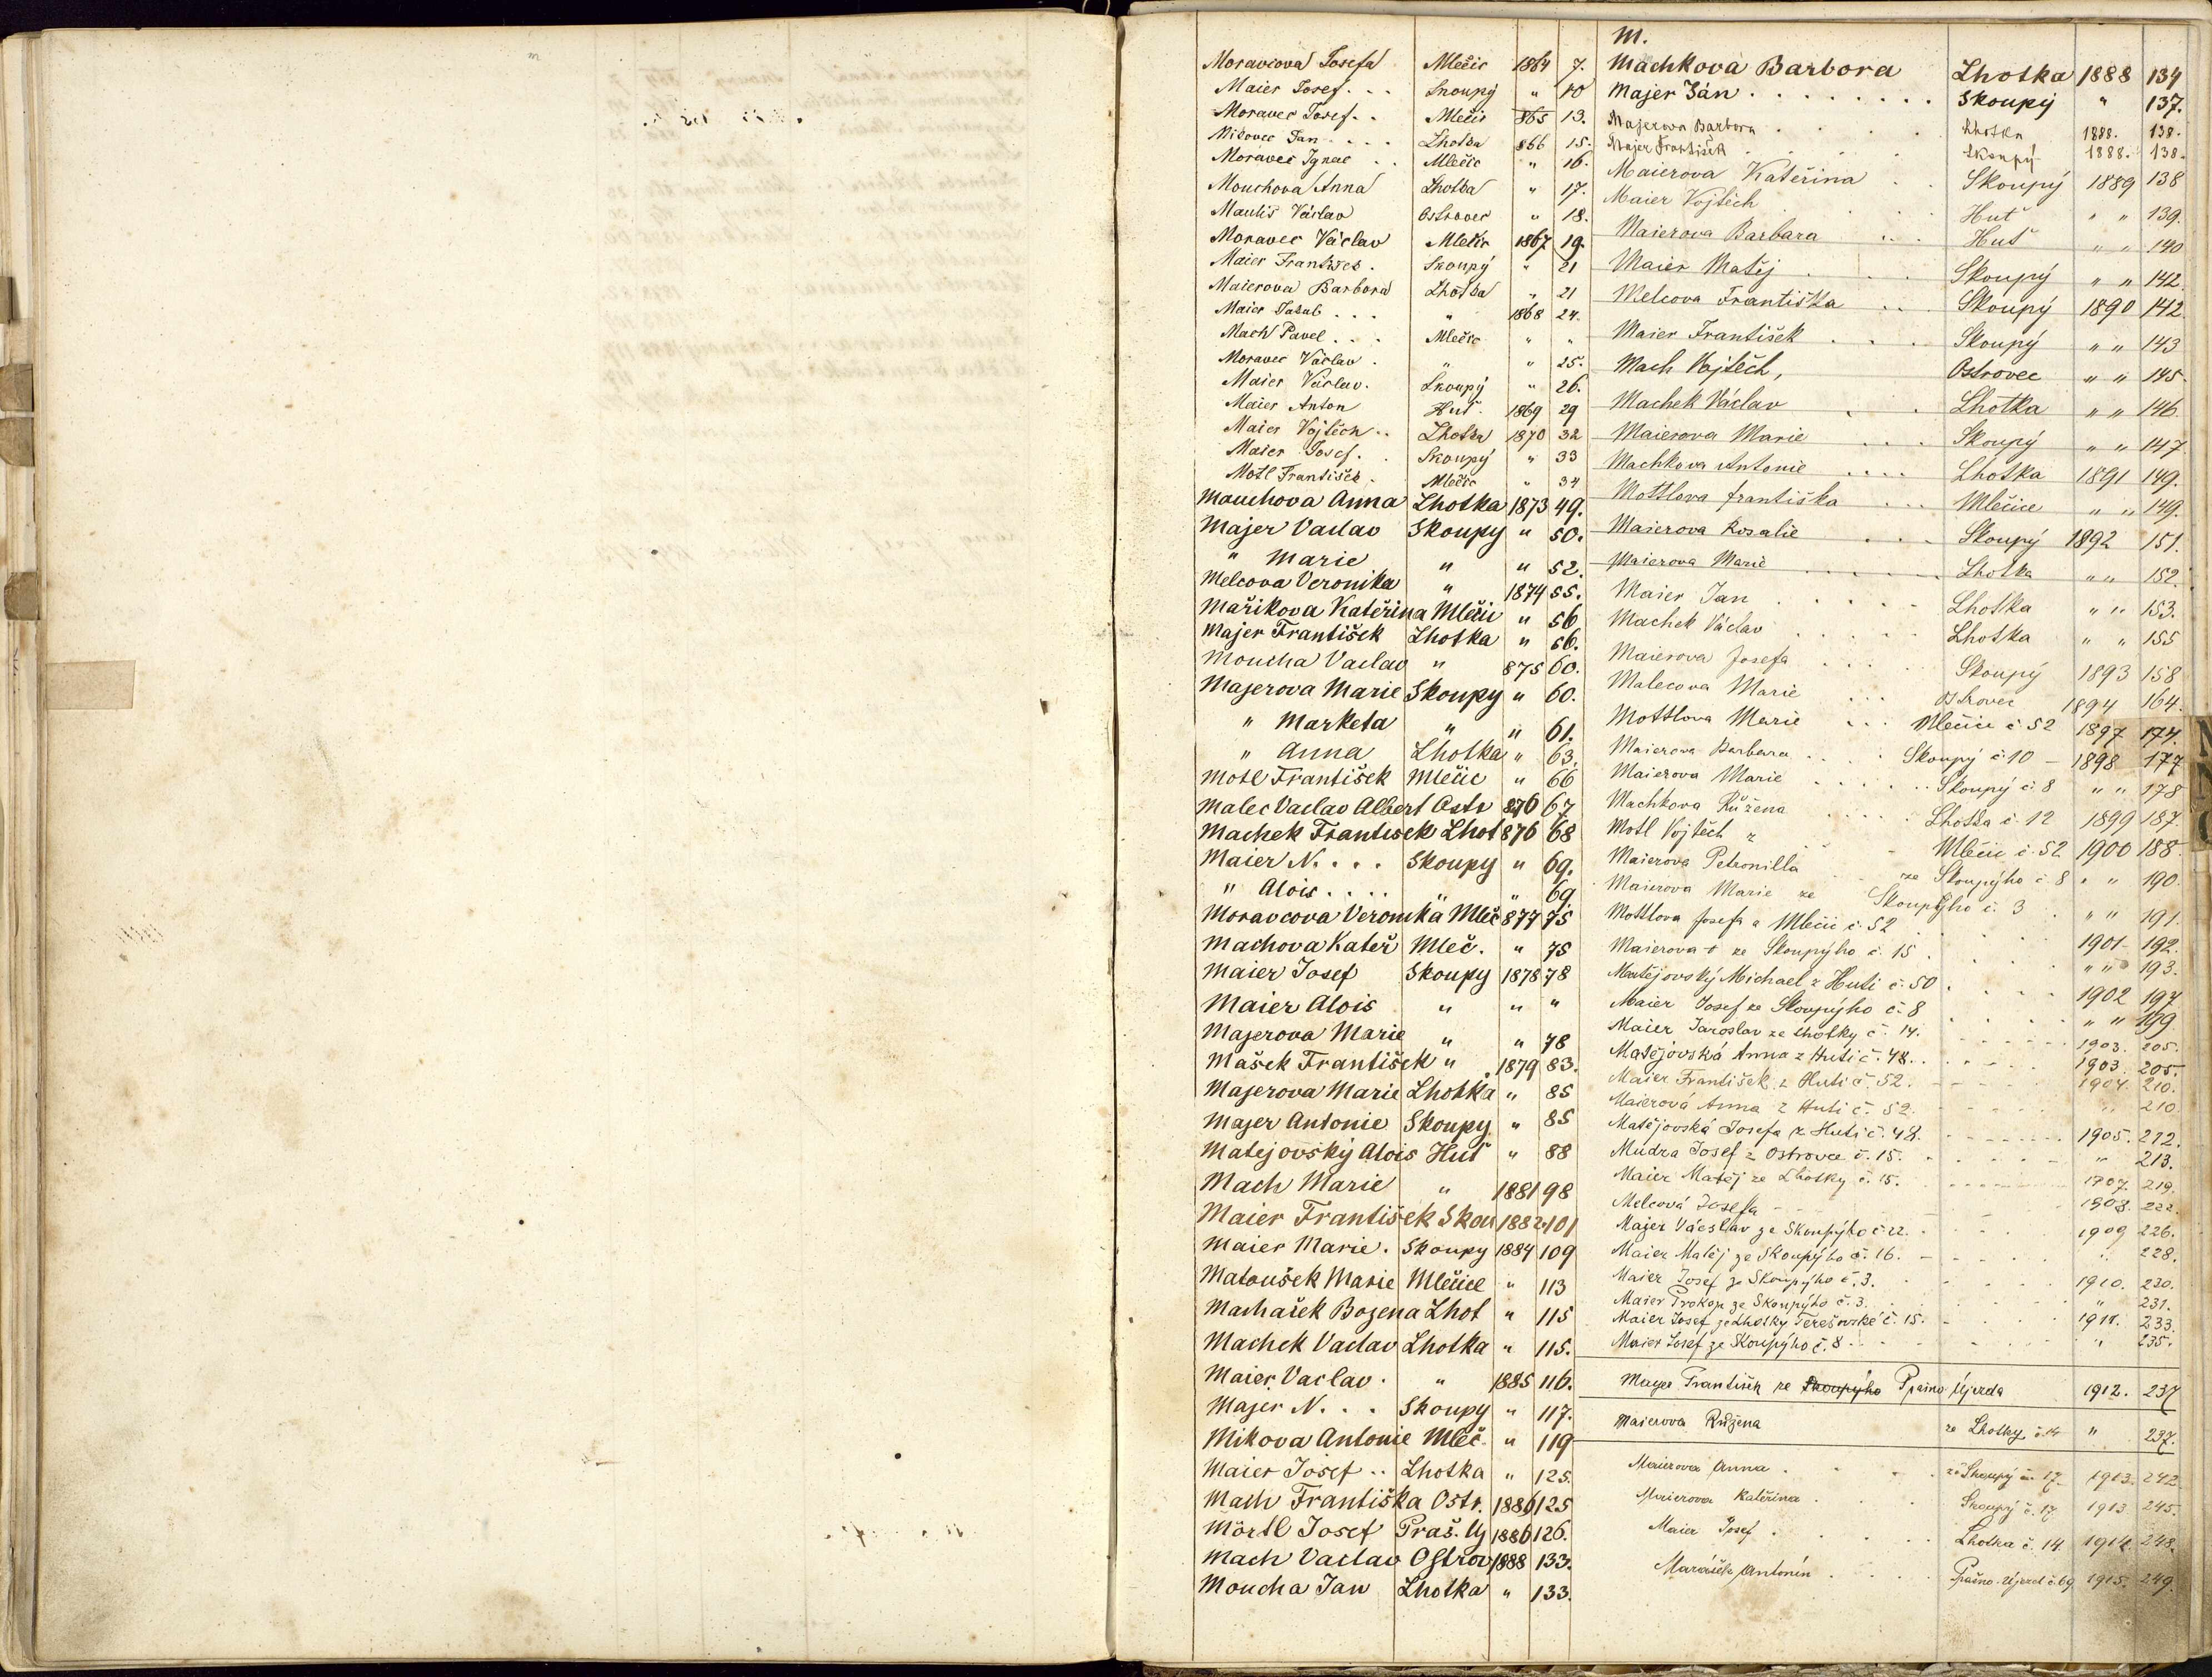 M.
Moravcova Josefa Mlečic 1864 7.
Maier Josef . . . Skoupy " 10
Moravec Josef . . Mlečic 865 13.
Lhotka 866 15.
Moravec Ignac . . Mlečic " 16.
Mouchova Anna Lhotka " 17.
Václav Ostrovec " 18.
Moravec Václav Mlečic 1867 19.
Maier František . Skoupy " 21
Maierova Barbora Lhotka " 21
Maier Jakub . . . " 1868 24.
Mach Pavel . . . Mlečic " "
Moravec Václav . " " 25.
Maier Václav. Skoupy " 26.
Maier Anton Huť. 1869 29
Maier Vojtěch .. Lhotka 1870 32
Maier Josef. . Skoupy " 33
Motl František . Mlečic " 34
Mouchova Anna Lhotka 1873 49.
Majer Vaclav Skoupy " 50.
" Marie " " 52.
Melcova Veronika " 1874 55.
Mařikova Kateřina Mlečic " 56
Majer František Lhotka " 56.
Moucha Vaclav " 875 60.
Majerova Marie Skoupy " 60.
" Marketa " " 61.
" Anna Lhotka " 63.
Motl František Mlečic " 66
Malec Vaclav Albert Ostr 876 67
Machek Frantisek Lhot 876 68
Maier N. . . . Skoupy " 69.
" Alois . . . . " " 69
Moravcova Veronika Mleč 877 75
Machova Kateř Mleč. " 75
Maier Josef Skoupy 1878 78
Maier Alois " " "
Majerova Marie " " 78
Mašek František " 1879 83.
Majerova Marie Lhotka " 85
Majer Antonie Skoupy " 85
Matejovský Alois Huť " 88
Mach Marie " 1881 98
Maier František Skou 1882 101
Maier Marie . Skoupy 1884 109
Matoušek Marie Mlečice " 113
Machašek Bozena Lhot " 115
Machek Vaclav Lhotka " 115.
Maier Vaclav . " 1885 116.
Majer N. . . Skoupy " 117.
Mikova Antonie Mleč. " 119
Maier Josef .. Lhotka " 125.
Mach Františka Ostr. 1886 125
Mörtl Josef Praš. Uj 1886 126.
Mach Vaclav Ostrov 1888 133.
Moucha Jan Lhotka " 133.
Machkova Barbora Lhotka 1888 134
Majer Ján . . . . . . . . Skoupy " 137.
Majerova Barbora . . . . Lhotka 1888. 138.
Majer František . . . . Skoupý 1888. 138.
Maierova Kateřina . . Skoupý 1889 138
Maier Vojtěch . . . Huť " " 139.
Maierova Barbara . . . Huť " " 140
Maier Matěj . . . Skoupý " " 142.
Melcova Františka . . . Skoupý 1890 142.
Maier František . . . . Skoupý " " 143
Mach Vojtěch, Ostrovec " " 145.
Machek Václav . . Lhotka " " 146.
Maierova Marie . . . . Skoupý " " 147
Machkova Antonie . . . . Lhotka 1891 149.
Mottlova františka . . . Mlečice " " 149.
Maierova Rosalie . . . Skoupý 1892 151.
Maierova Marie . . . . . Lhotka " " 152.
Maier Jan . . . . . Lhotka " " 153.
Machek Václav . . . . . Lhotka " " 155
Maierova Josefa . . . . Skoupý 1893 158
Malecova Marie . . . Ostrovec 1894 164.
Mottlova Marie . . . Mlečice č 52 1897 174.
Maierova Barbara . . . . Skoupý č 10 - 1898 177
Maierova Marie . . . . . . Skoupý č. 8 " " 178
Machkova Růžena . . . . Lhotka č. 12 1899 187.
Motl Vojtěch z Mlečic č. 52 1900 188.
Maierova Petronilla ze Skoupýho č 8 " " 190.
Maierova Marie ze Skoupýho č. 3 . " " 191.
Mottlova Josefa z Mlečic č. 52 . . . . 1901 192.
Maierova ze Skoupýho č. 15 . . . . " " 193.
Matějovský Michael z Huti č. 50 . . . . 1902 197
Maier Josef ze Skoupýho č. 8 . . . . " " 199.
Maier Jaroslav ze Lhotky č. 14. 1903. 205.
Matějovská Anna z Huti č. 48. 1903. 205.
Maier František z Huti č. 52. 1904. 210.
Maierová Anna z Huti č. 52. " 210.
Matějovská Josefa z Huti č. 48. 1905. 212.
Mudra Josef z Ostrovce č. 15. " 213.
Maier Matěj ze Lhotky č. 15. 1907. 219.
Melcová Josefa 1908. 222.
Majer Václav ze Skoupýho č. 22. 1909 226.
Maier Matěj ze Skoupýho č. 16. " 228.
Maier Josef ze Skoupýho č. 3. 1910. 230.
Maier Prokop ze Skoupýho č. 3. " 231.
Maier Josef ze Lhotky Terešovské č. 15. 1911. 233.
Maier Josef ze Skoupýho č. 8 " 235.
František ze Skoupýho Prašno Újezda 1912. 237
Maierova Růžena ze Lhotky č. 14 " 237.
Maierova Anna . . . . ze Skoupý č. 17. 1913. 242
Maierova Kateřina . . . . Skoupý č. 17 1913 245.
Maier Josef . . . . Lhotka č. 14. 1914. 248.
Antonín . . . . Prašno-Újezd č. 69 1915. 249.